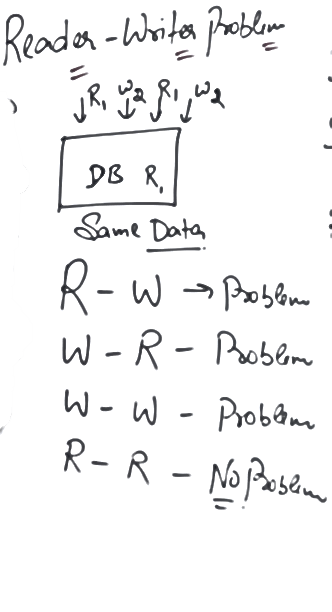 Reader-Writer Problem
R1 W2 R1 W2
DB R1
Same Data
R - W → Problem
W - R - Problem
W - W - Problem
R - R - No Problem